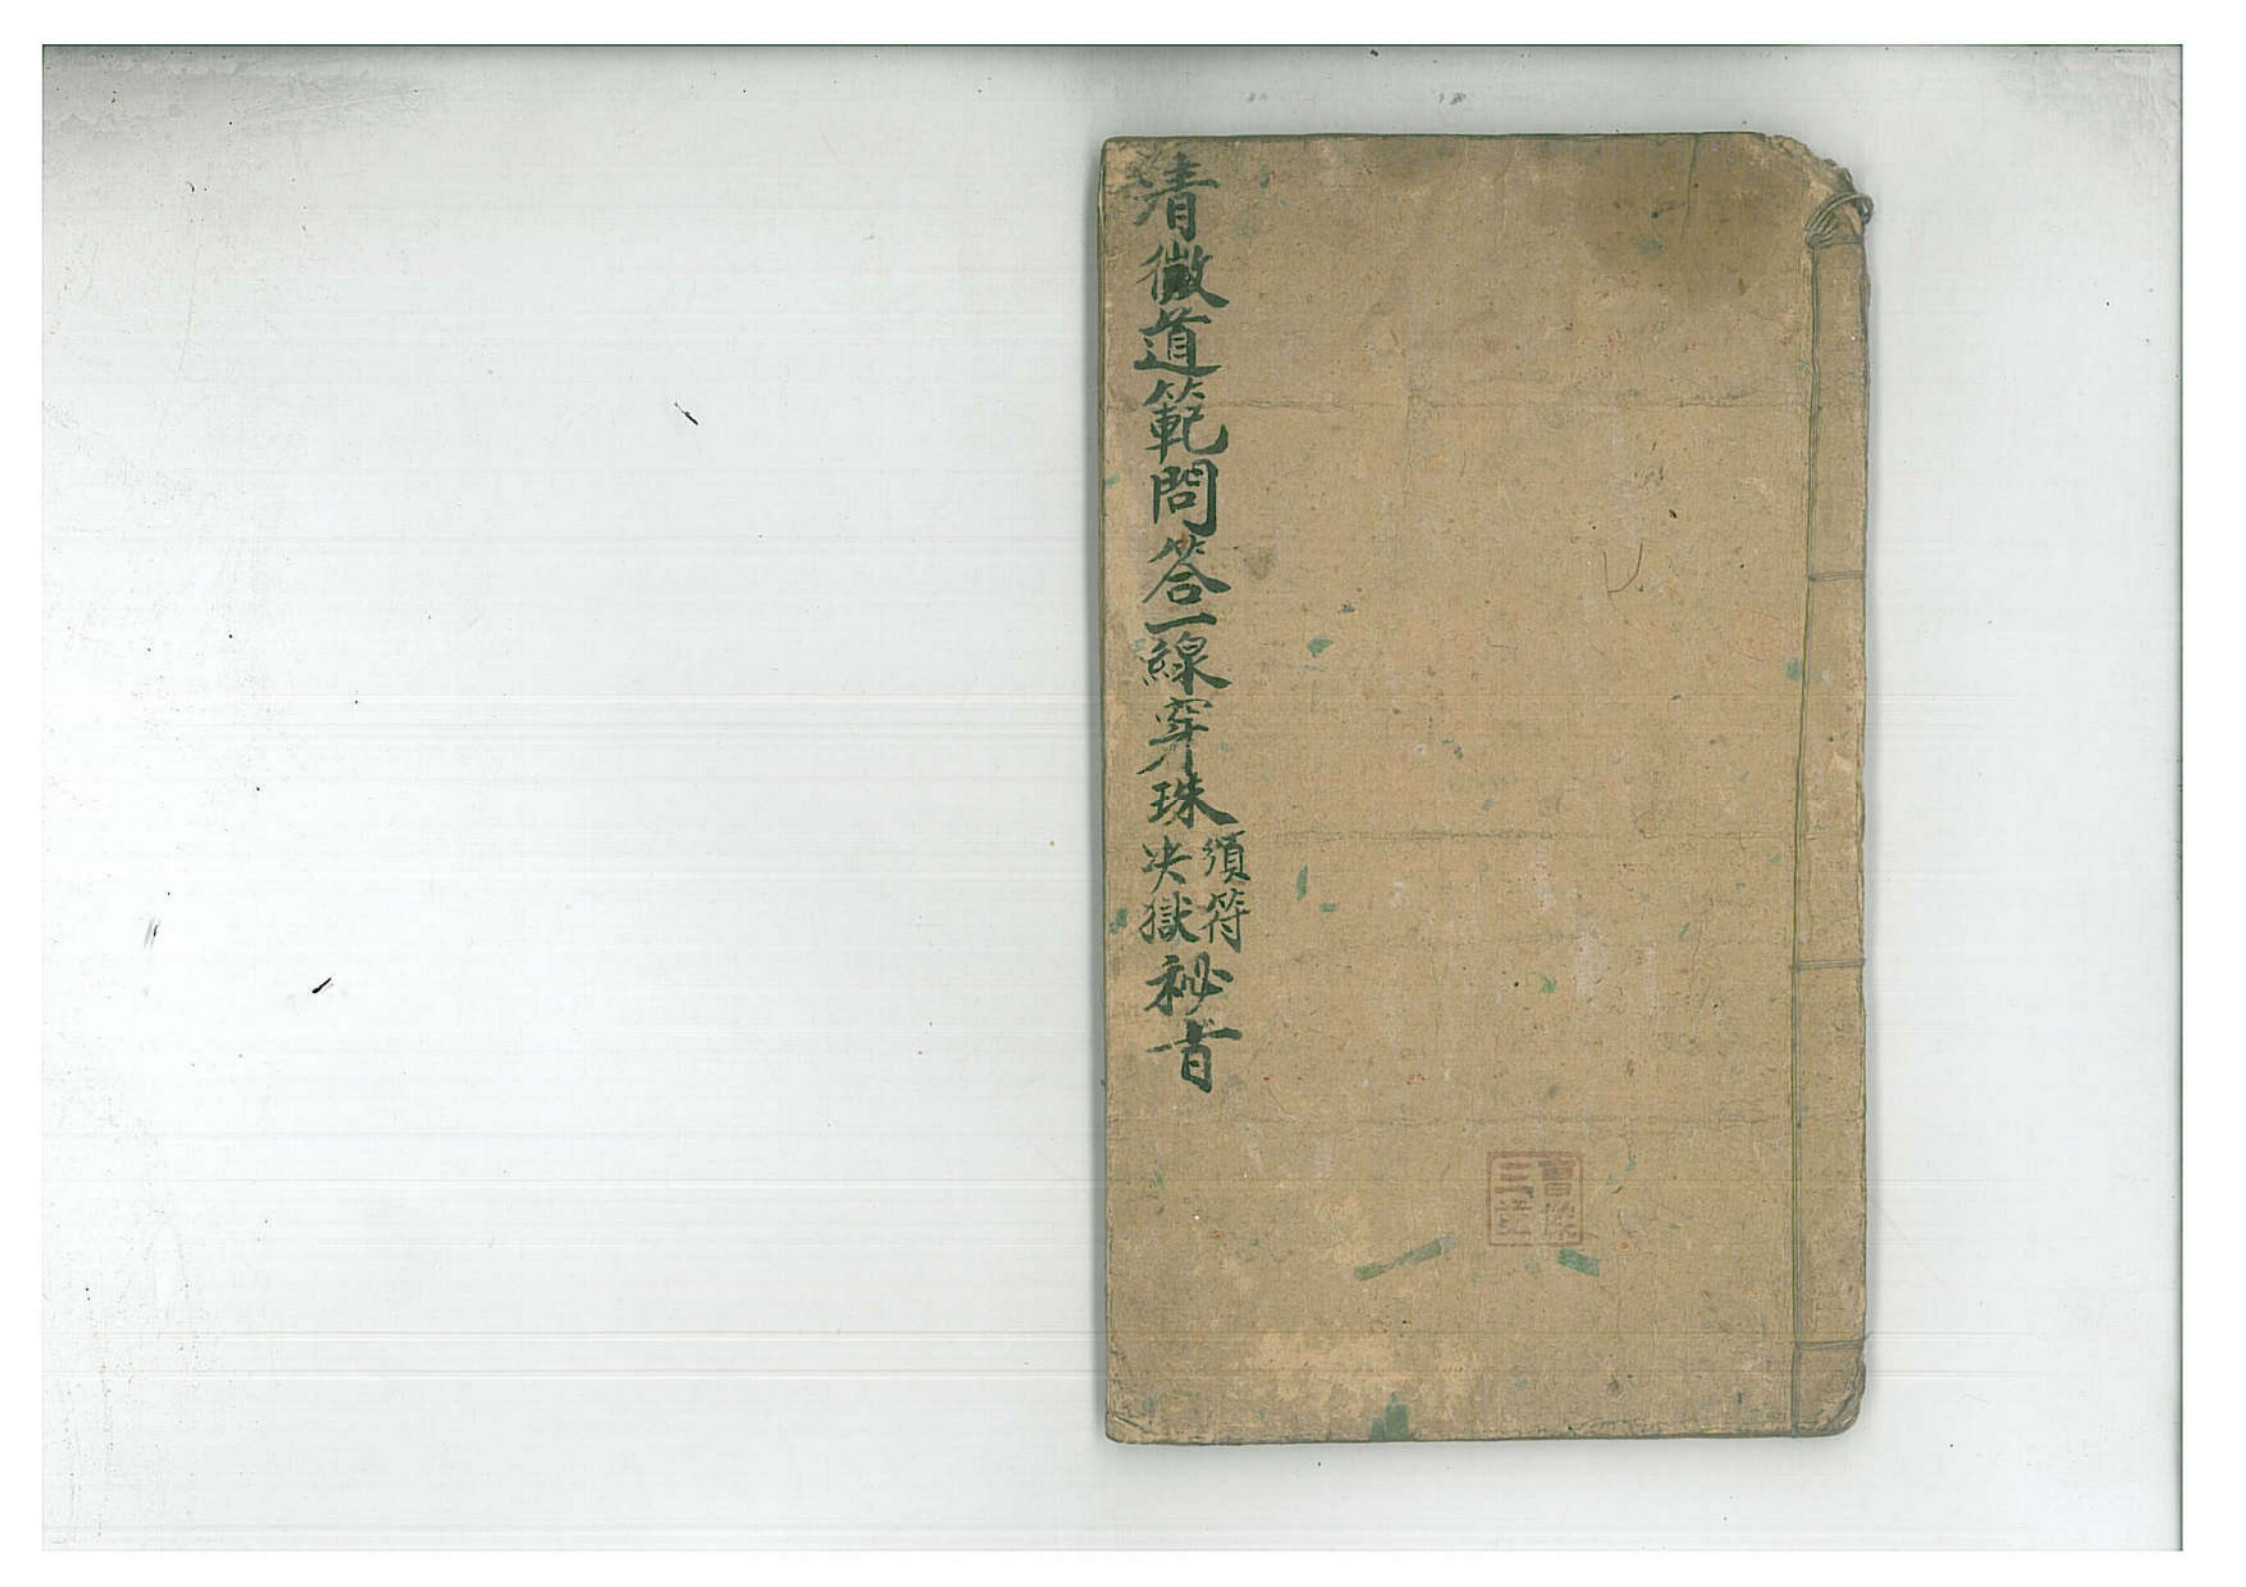 清微道範問答一線穿珠
須符
决獄
秘旨
三